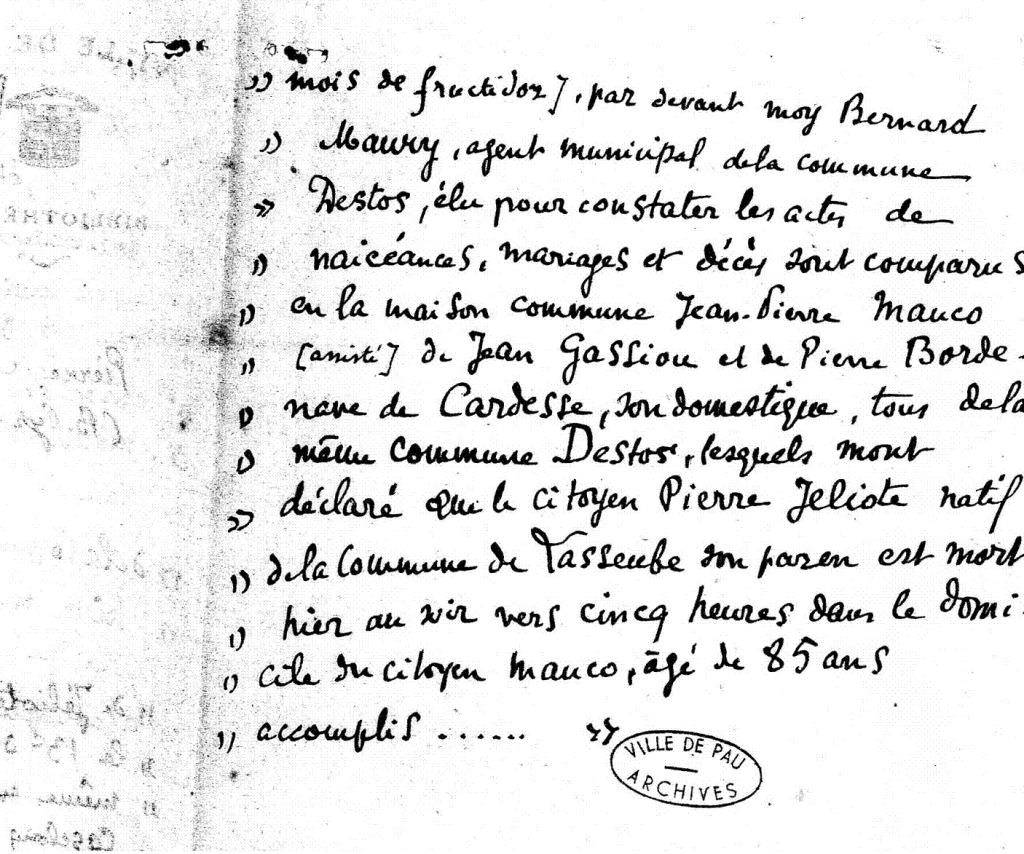 » mois de fructidor], par devant moy Bernard
» Maury, agent municipal de la commune
» Destos, élu pour constater les actes de
» naicéances, mariages et décès sont comparus
» en la maison commune Jean-Pierre Mauco
» [assisté] de Jean Gassiou et de Pierre Borde-
» nave de Cardesse, son domestique, tous de la
» même commune Destos, lesquels mont
» déclaré que le citoyen Pierre Jeliote natif
» de la Commune de Lasseube son paren est mort
» hier au soir vers cincq heures dans le domi-
» cile du citoyen Mauco, âgé de 85 ans
» accomplis ...... »
VILLE DE PAU
ARCHIVES